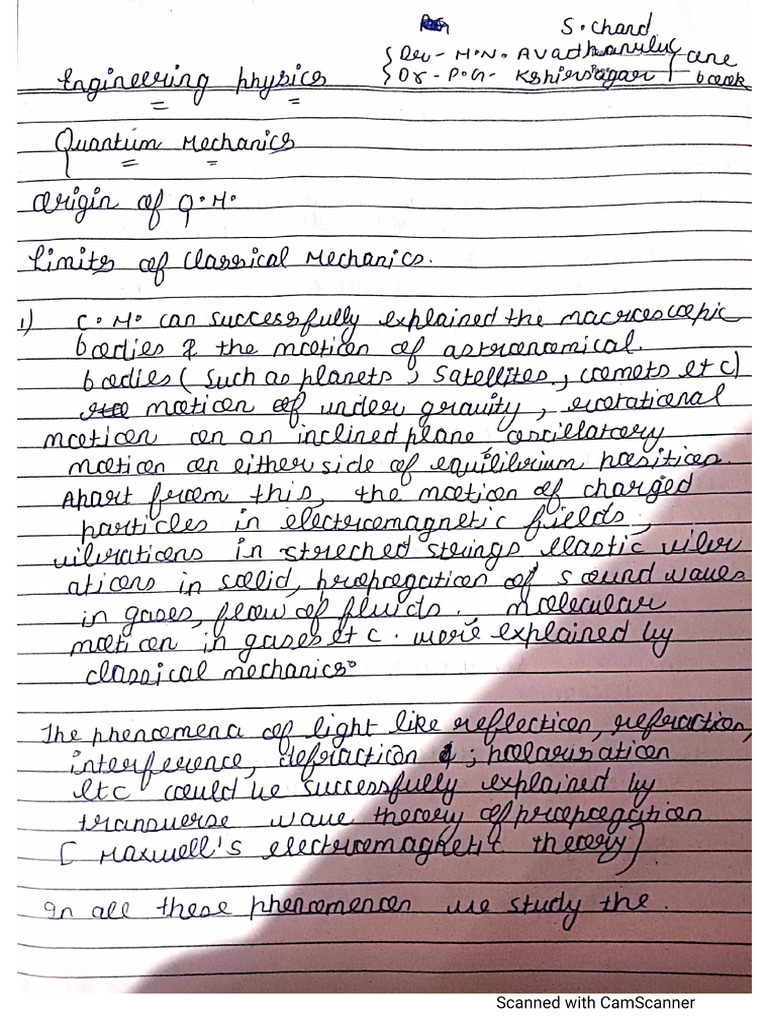 S. chand
Engineering physics
{ Dr - M.N. Avadhanulu } one
{ Dr - P.G. Kshirsagar } book
Quantum Mechanics
origin of Q.M.
Limits of classical Mechanics.
1) C.M. can successfully explained the macroscopic
bodies & the motion of astronomical
bodies (such as planets, satellites, comets etc)
motion of under gravity, rotational
motion on an inclined plane oscillatory
motion on either side of equilibrium position.
Apart from this, the motion of charged
particles in electromagnetic fields,
vibrations in streched strings elastic vibr
ations in solid, propogation of sound waves
in gases, flow of fluids. molecular
motion in gases etc. were explained by
classical mechanics.
The phenomena of light like reflection, refraction,
interference, defraction ; polarisation
etc could be successfully explained by
transverse wave theory of propogation
[Maxwell's electromagnetic theory]
In all these phenomenon we study the.
Scanned with CamScanner